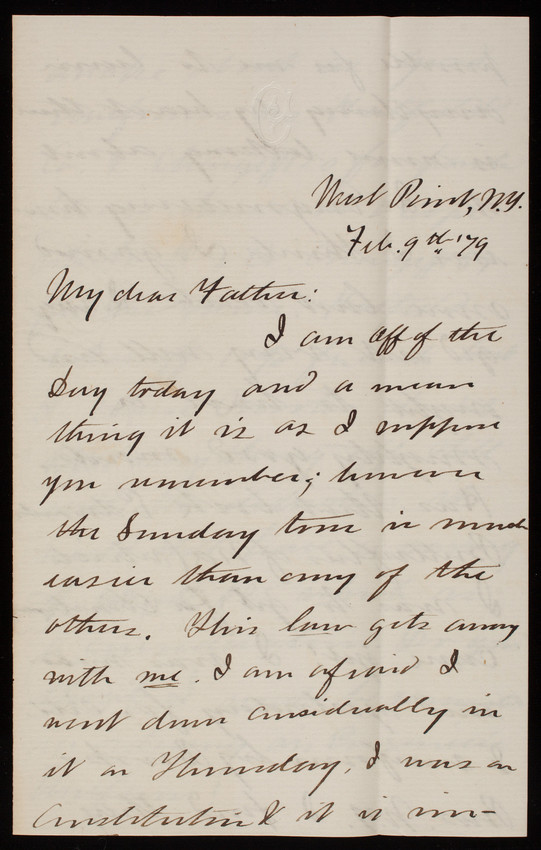 West Point, N.Y.
Feb. 9th '79
My dear Father:
I am Off of the
Day today and a mean
thing it is as I suppose
you remember; however
the Sunday tour is much
easier than any of the
others. This law gets away
with me. I am afraid I
went down considerably in
it on Thursday. I was on
Constitution & it is im-